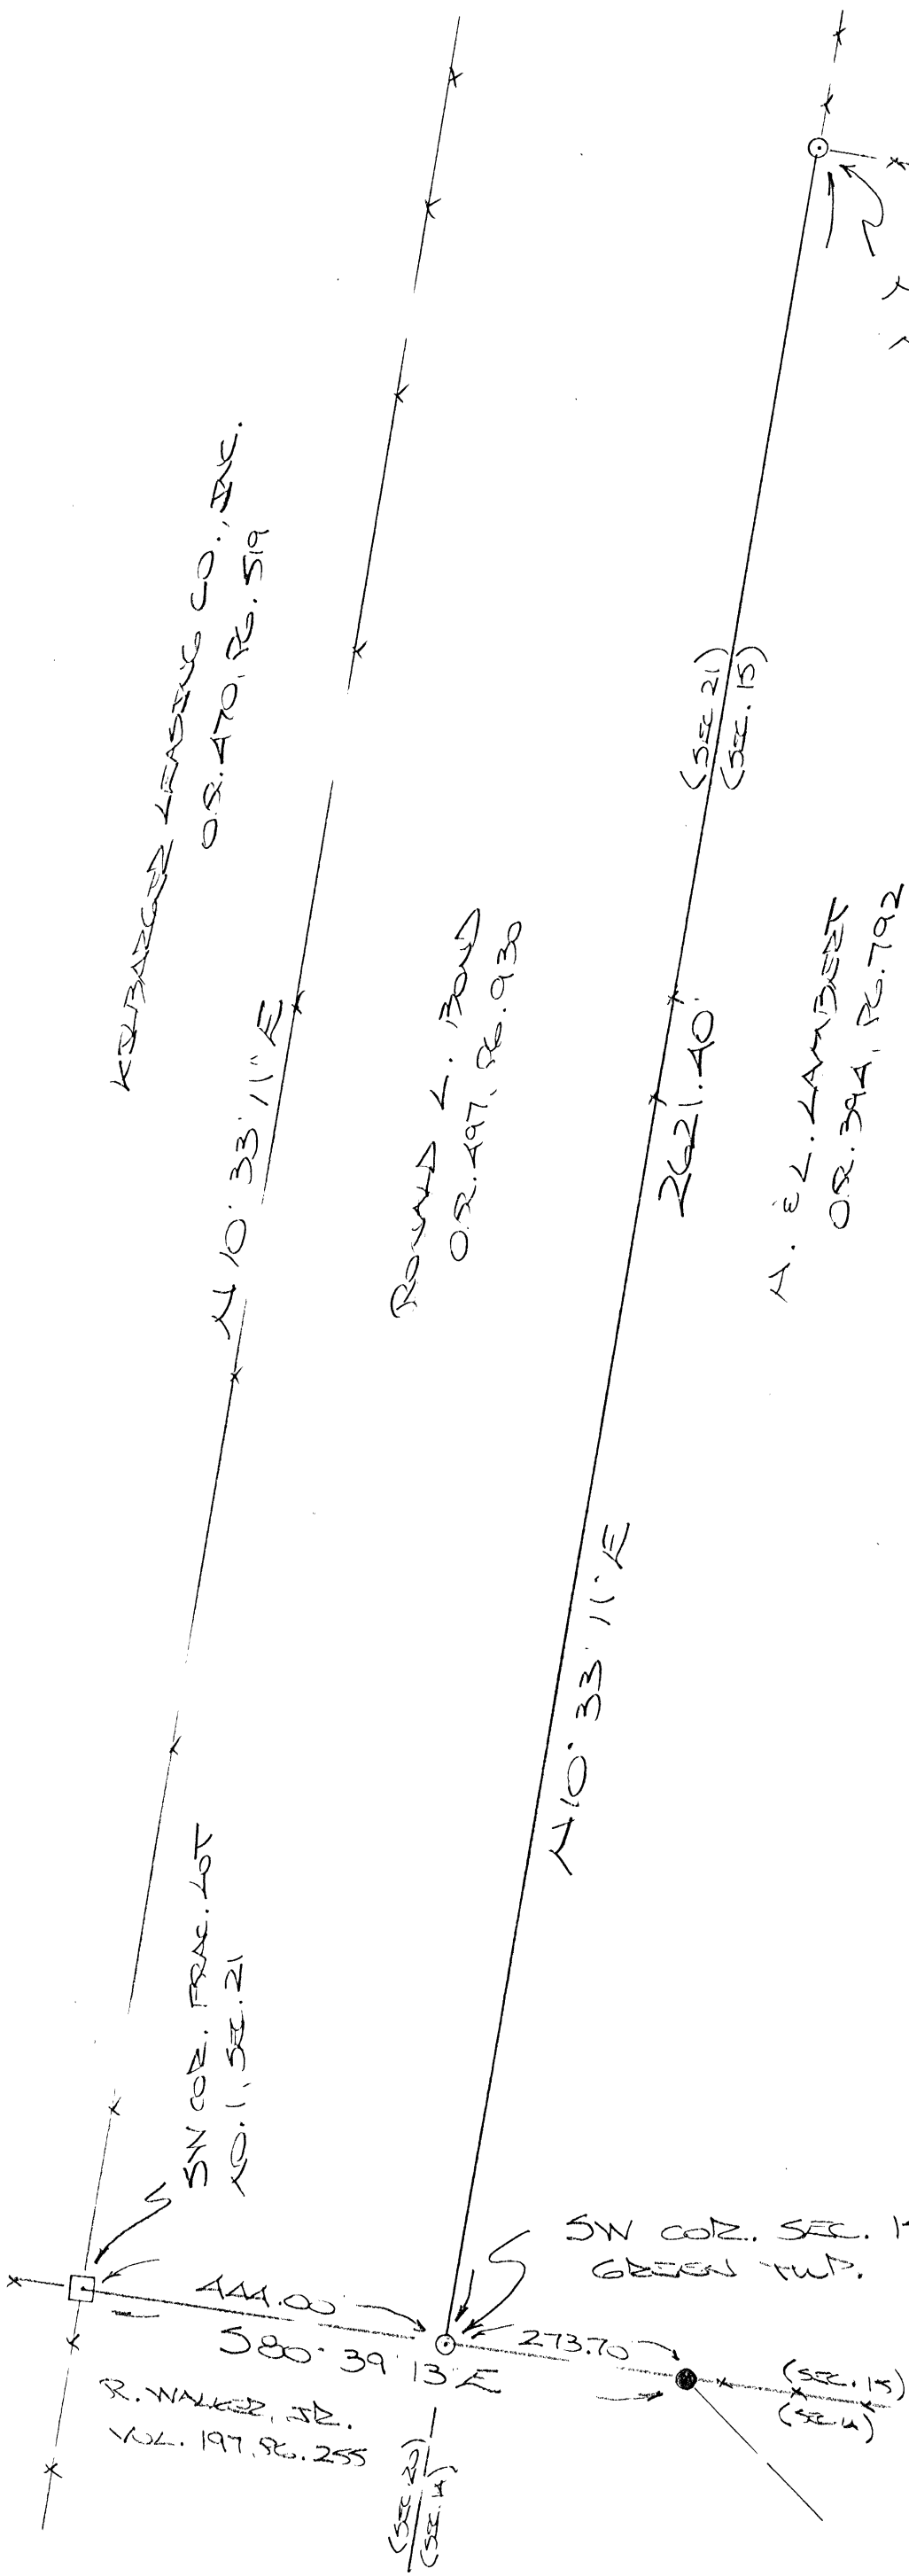 KRIBARGER LEASING CO., INC.
O.R. 470, PG. 519
N 10° 33' 11" E
RONALD L. BOND
O.R. 497, PG. 930
(SEC. 21)
(SEC. 15)
2621.40'
A. & L. LAMBERT
O.R. 394, PG. 792
N 10° 33' 11" E
SW COR. FRAC. LOT
NO. 1, SEC. 21
SW COR. SEC.
GREEN TWP.
444.00'
S 80° 39' 13" E
273.70'
(SEC. 15)
R. WALKER, JR.
VOL. 197, PG. 255
(SEC. 20)